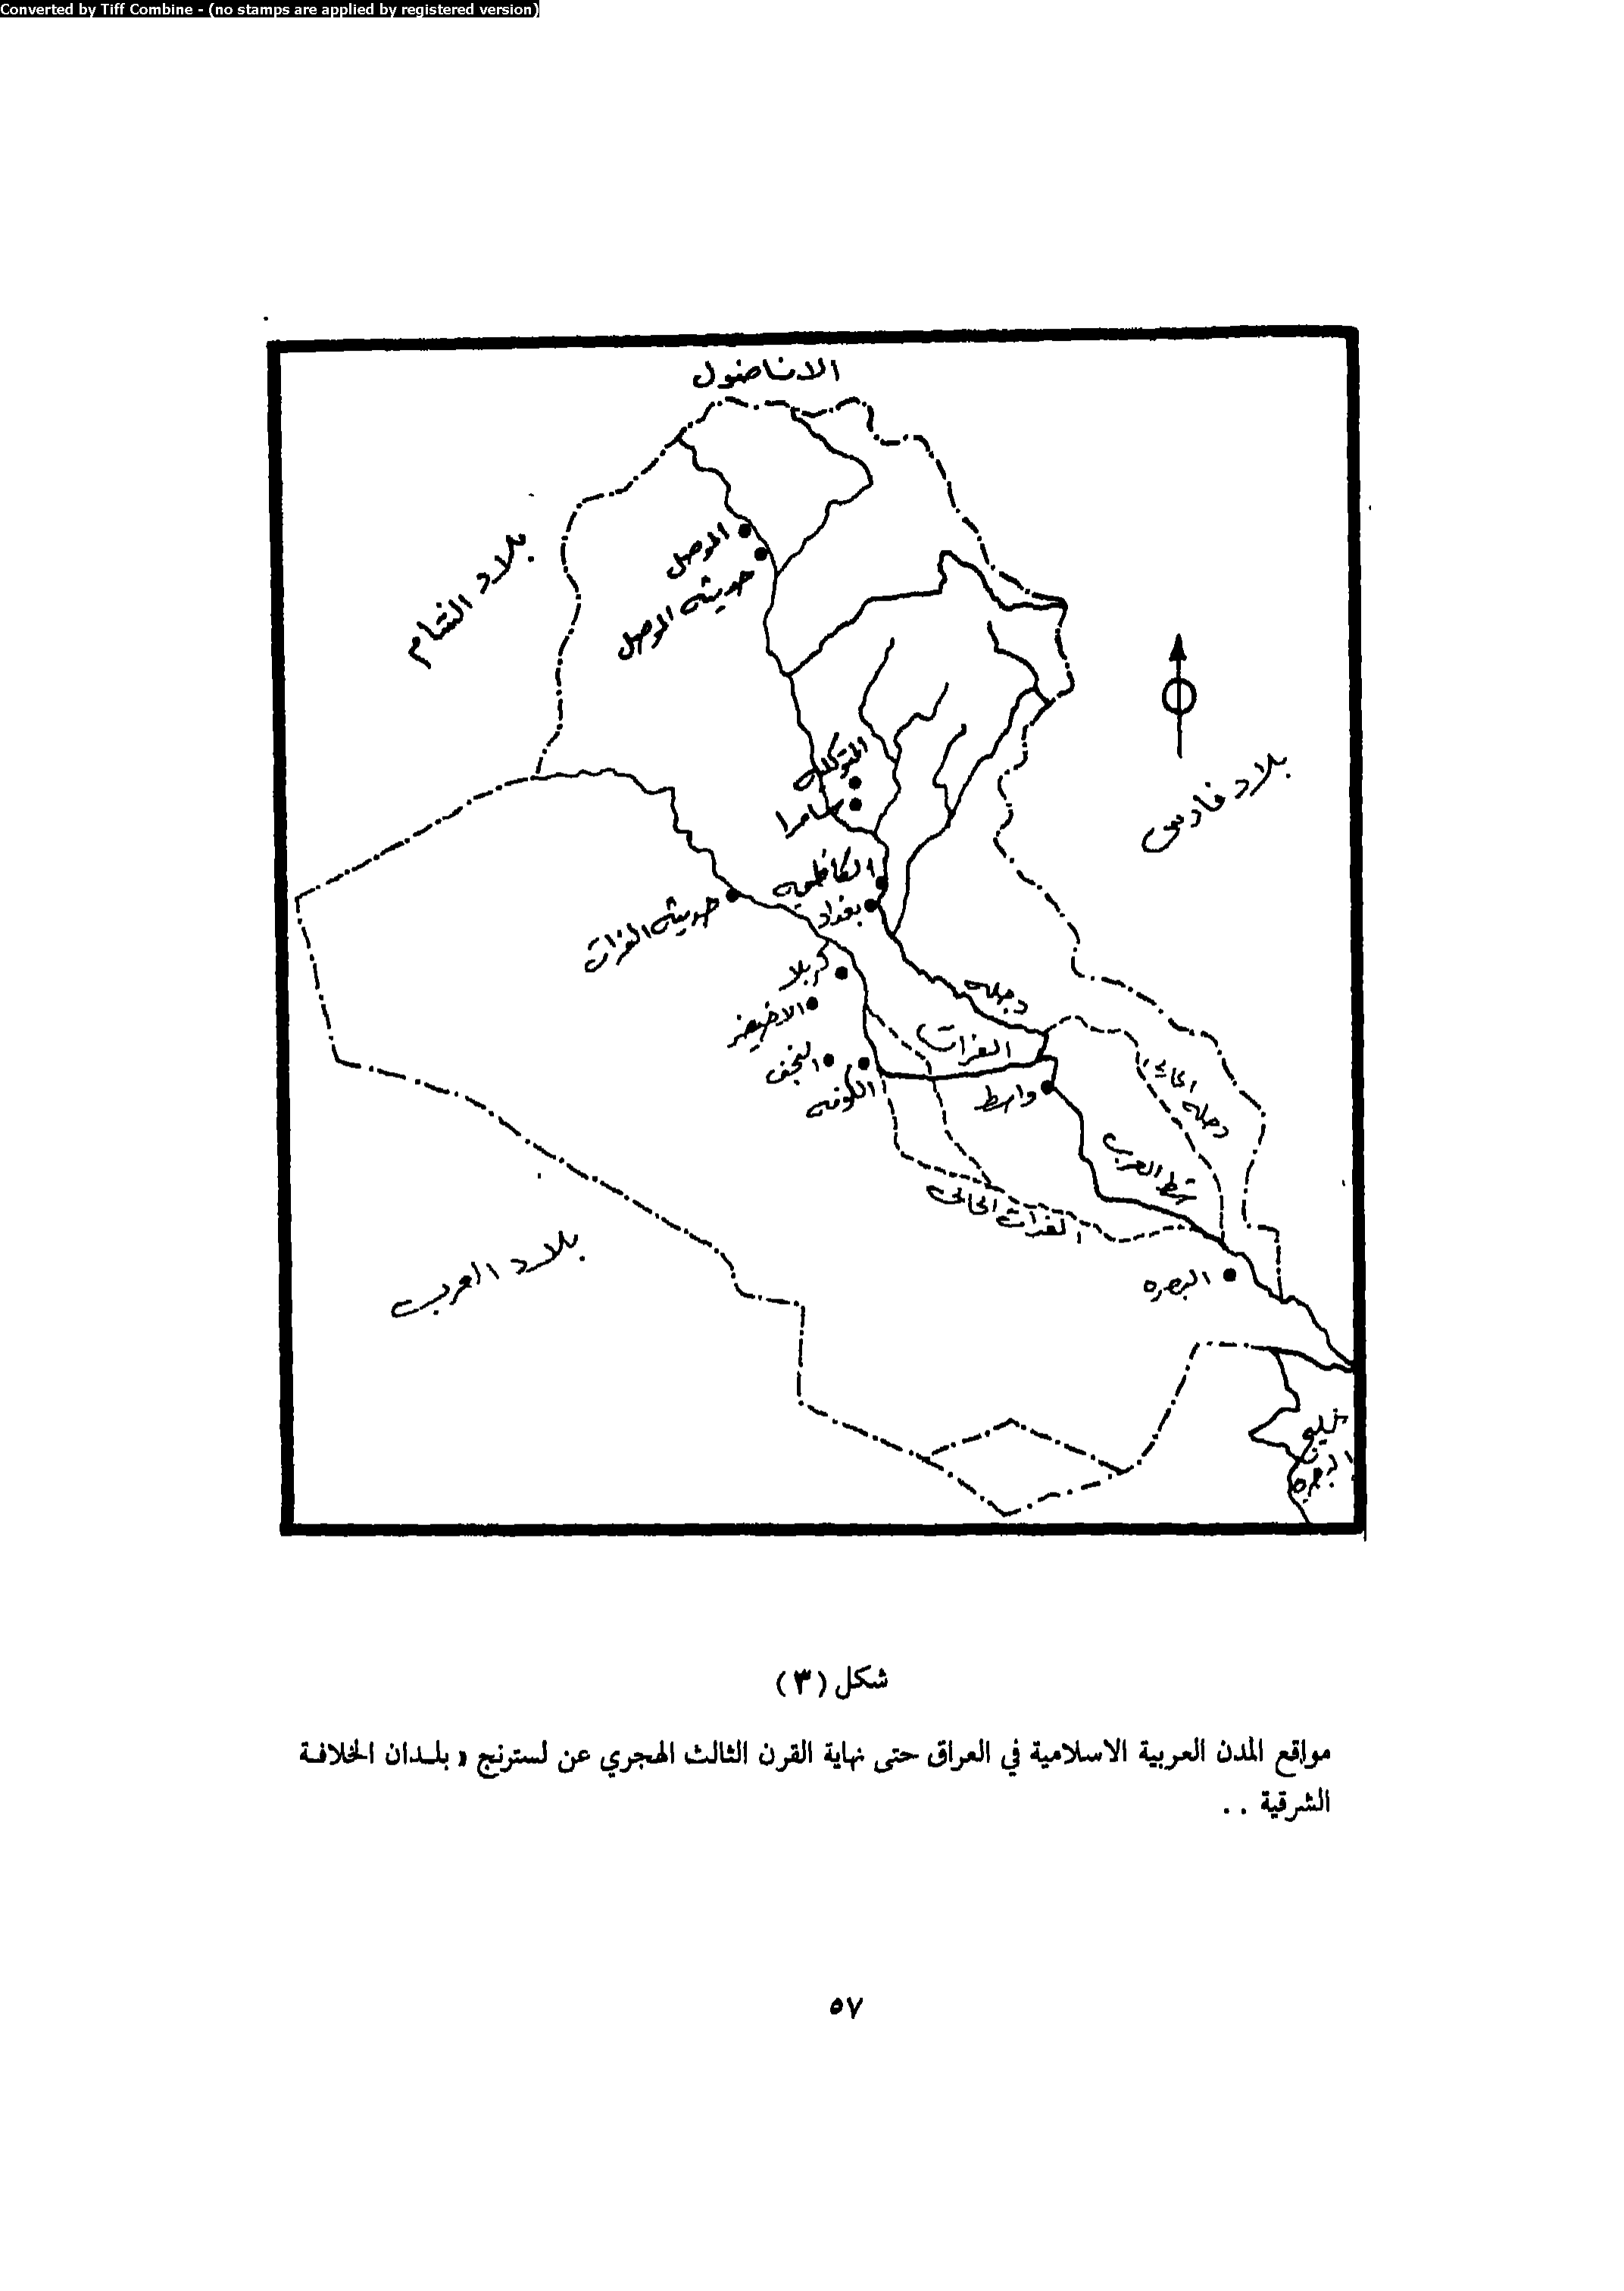 Converted by Tiff Combine - (no stamps are applied by registered version)
الاناضول
بلاد الشام
الموصل
حديثه الموصل
بلاد فارس
المتوكليه
سامرا
الكاظميه
بغداد
حديثه الفرات
كربلا
الاخيضر
النجف
الكوفه
دجله
الفرات
واسط
دجله الحالي
شط العرب
الفرات الحالي
البصره
بلاد العرب
خليج
البصره
شكل (٣)
مواقع المدن العربية الاسلامية في العراق حتى نهاية القرن الثالث الهجري عن لسترنج « بلـدان الخلافـة
الشرقية . .
٥٧